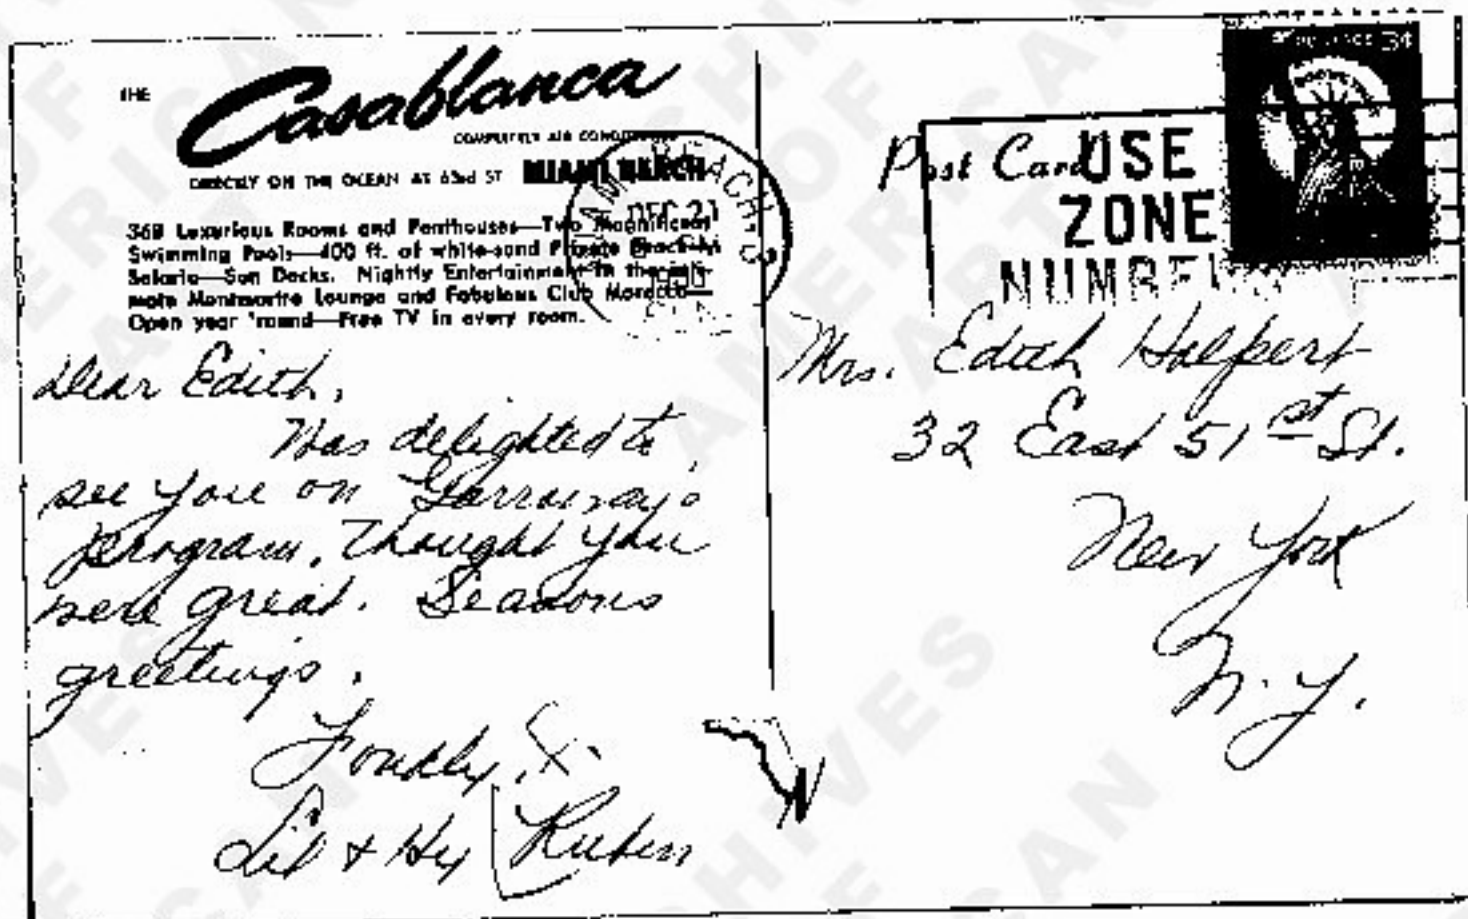 THE
Casablanca
COMPLETELY AIR CONDITIONED
DIRECTLY ON THE OCEAN AT 63rd ST MIAMI BEACH
368 Luxurious Rooms and Penthouses—Two Magnificent
Swimming Pools—400 ft. of white-sand Private Beach—
Solaria—Sun Decks. Nightly Entertainment in the inti-
mate Montmartre Lounge and Fabulous Club Morocco—
Open year 'round—Free TV in every room.
MIAMI BEACH
DEC 21
Dear Edith,
Was delighted to
see you on Garroway's
program. Thought you
were great. Seasons
greetings.
Fondly,
Lil + Hy Ruben
Post Card
USE
ZONE
NUMBE
3¢
Mrs. Edith Halpert
32 East 51st St.
New York
N.Y.
ARCHIVES OF AMERICAN ART